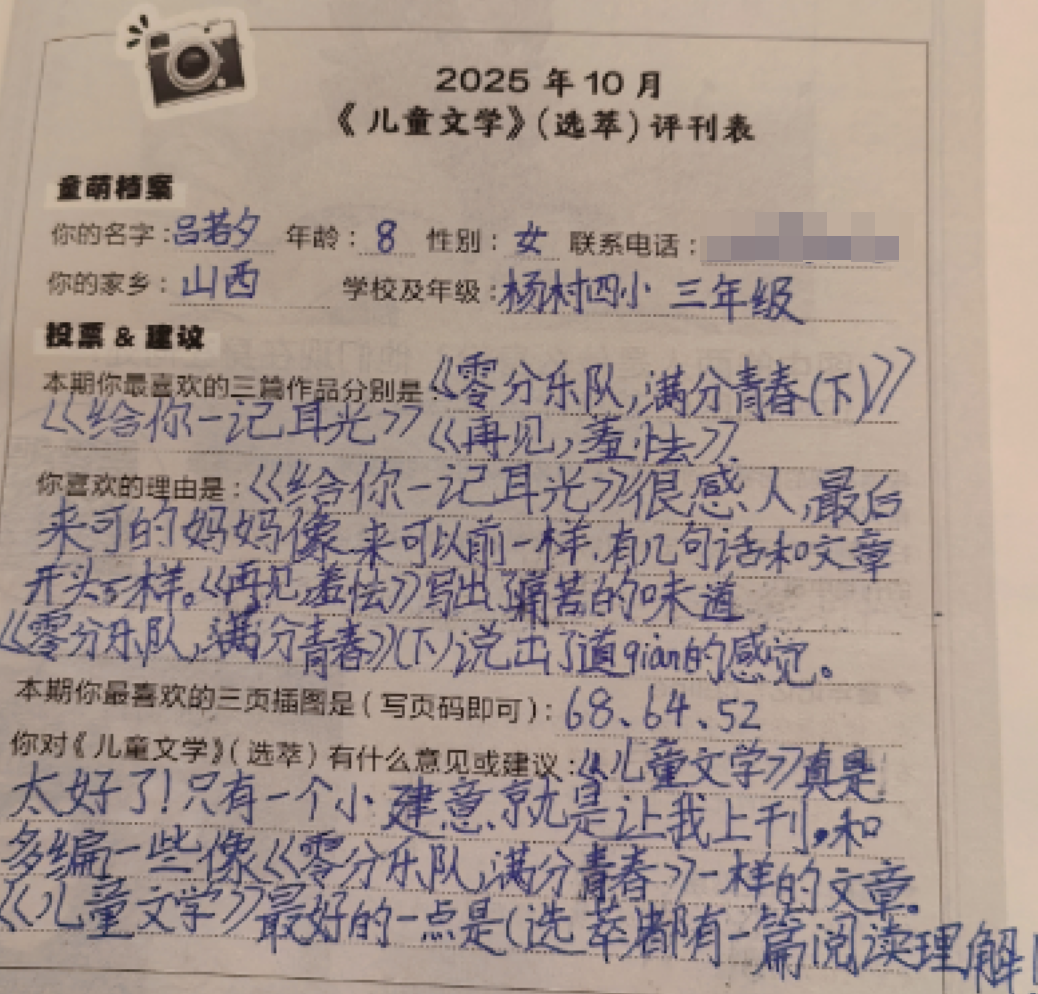 2025 年 10 月
《儿童文学》（选萃）评刊表
童萌档案
你的名字：吕若夕 年龄：8 性别：女 联系电话：
你的家乡：山西 学校及年级：杨村四小 三年级
投票 & 建议
本期你最喜欢的三篇作品分别是：《零分乐队，满分青春（下）》
《给你一记耳光》《再见，羞怯》.
你喜欢的理由是：《给你一记耳光》很感人，最后
来可的妈妈像来可以前一样，有几句话和文章
开头一样。《再见，羞怯》写出了痛苦的味道
《零分乐队，满分青春》（下）说出了道qian的感觉。
本期你最喜欢的三页插图是（写页码即可）：68、64、52
你对《儿童文学》（选萃）有什么意见或建议：《儿童文学》真是
太好了！只有一个小建意，就是让我上刊，和
多编一些像《零分乐队，满分青春》一样的文章。
《儿童文学》最好的一点是（选萃都有一篇阅读理解